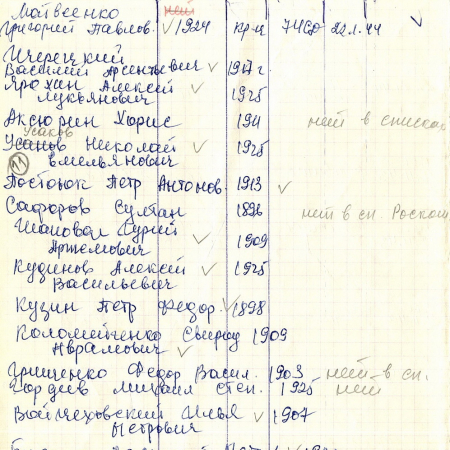 Матвеенко нет
Григорий Павлов. ✓ 1924 кр-ц 74 СД 22.1.44 ✓
Василий Арсентьевич ✓ 1917 г.
Ярохин Алексей ✓ 1925
Лукьянович
Аксюрин Хорис 191 нет в списках
Усаков
Усанов Николай ✓ 1925
11 Емельянович
Постоюк Петр Антонов. 1913 ✓
Сафоров Султан 1896 нет в сп. Роском
Шаповал Гурий ✓ 1909
Артемович
Кудинов Алексей ✓ 1925
Васильевич
Кузин Петр Федор. ✓ 1898
Коломийченко Свирид 1909
Аврамович ✓
Грищенко Федор Васил. 1903 нет в сп.
Гордеев Михаил Степ. 1925 нет
Войцеховский Илья ✓ 1907
Петрович